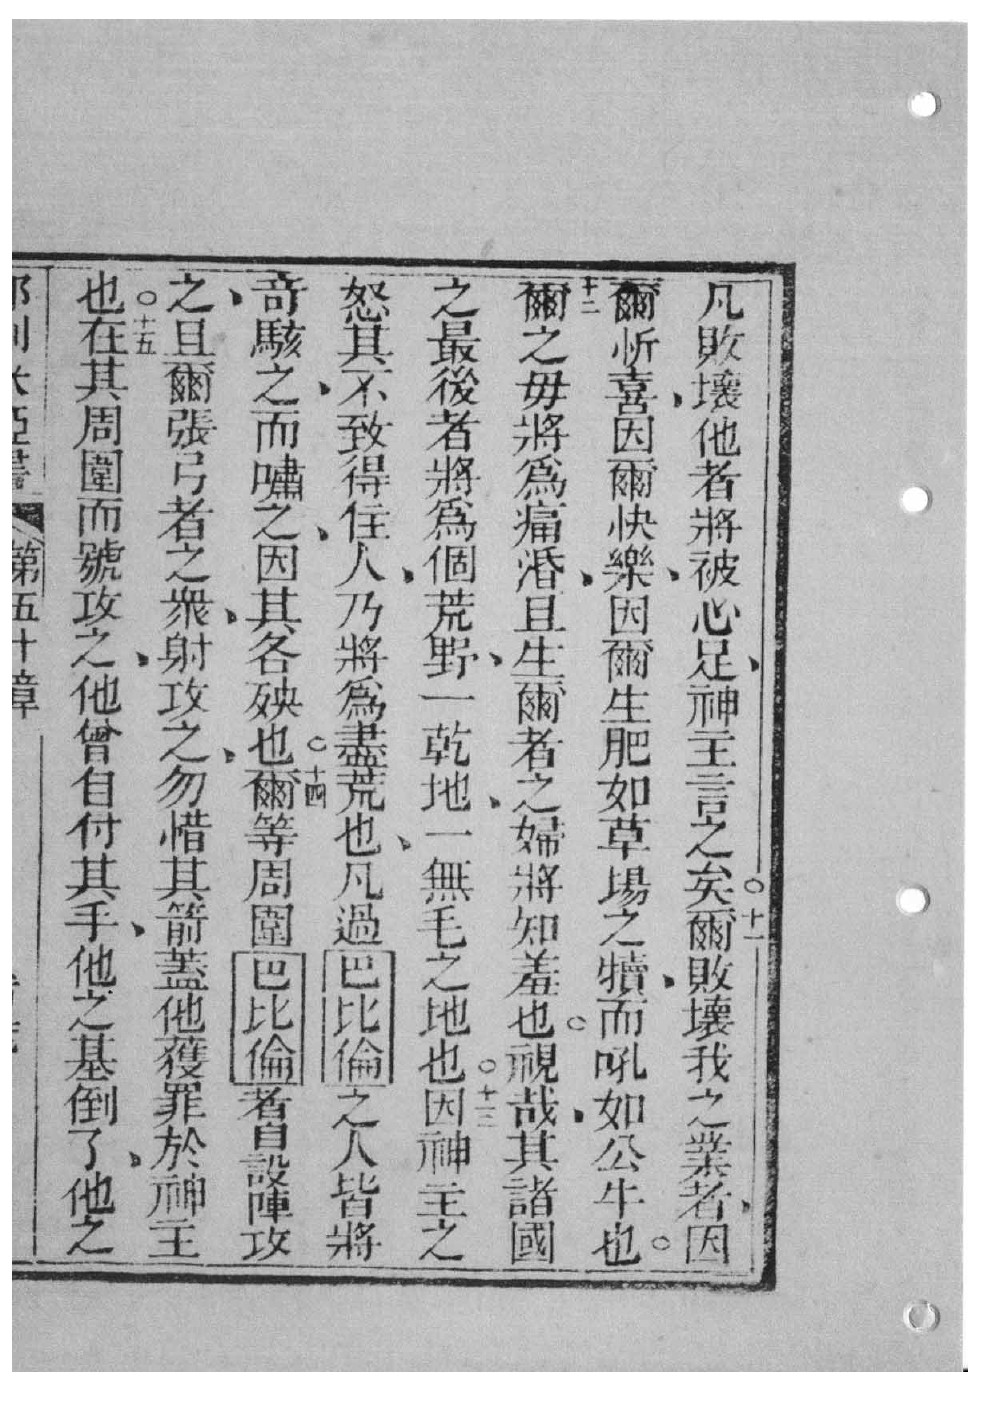 凡敗壞他者將被心足、神主言之矣○十一爾敗壞我之業者、因
爾忻喜、因爾快樂、因爾生肥如草場之犢、而吼如公牛也○
十二爾之毋將爲痛湣、且生爾者之婦將知羞也○視哉、其諸國
之最後者將爲個荒野、一乾地、一無毛之地也○十三因神主之
怒其不致得住人、乃將爲盡荒也、凡過巴比倫之人皆將
奇駭之、而嘯之、因其各殃也○十四爾等周圍巴比倫者自設陣攻
之、且爾張弓者之衆、射攻之、勿惜其箭蓋他獲罪於神主
也○十五在其周圍而號攻之、他曾自付其手、他之基倒了、他之
耶利米亞書 第五十章